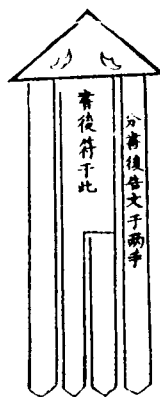 分書後告文于兩手
書後符于此